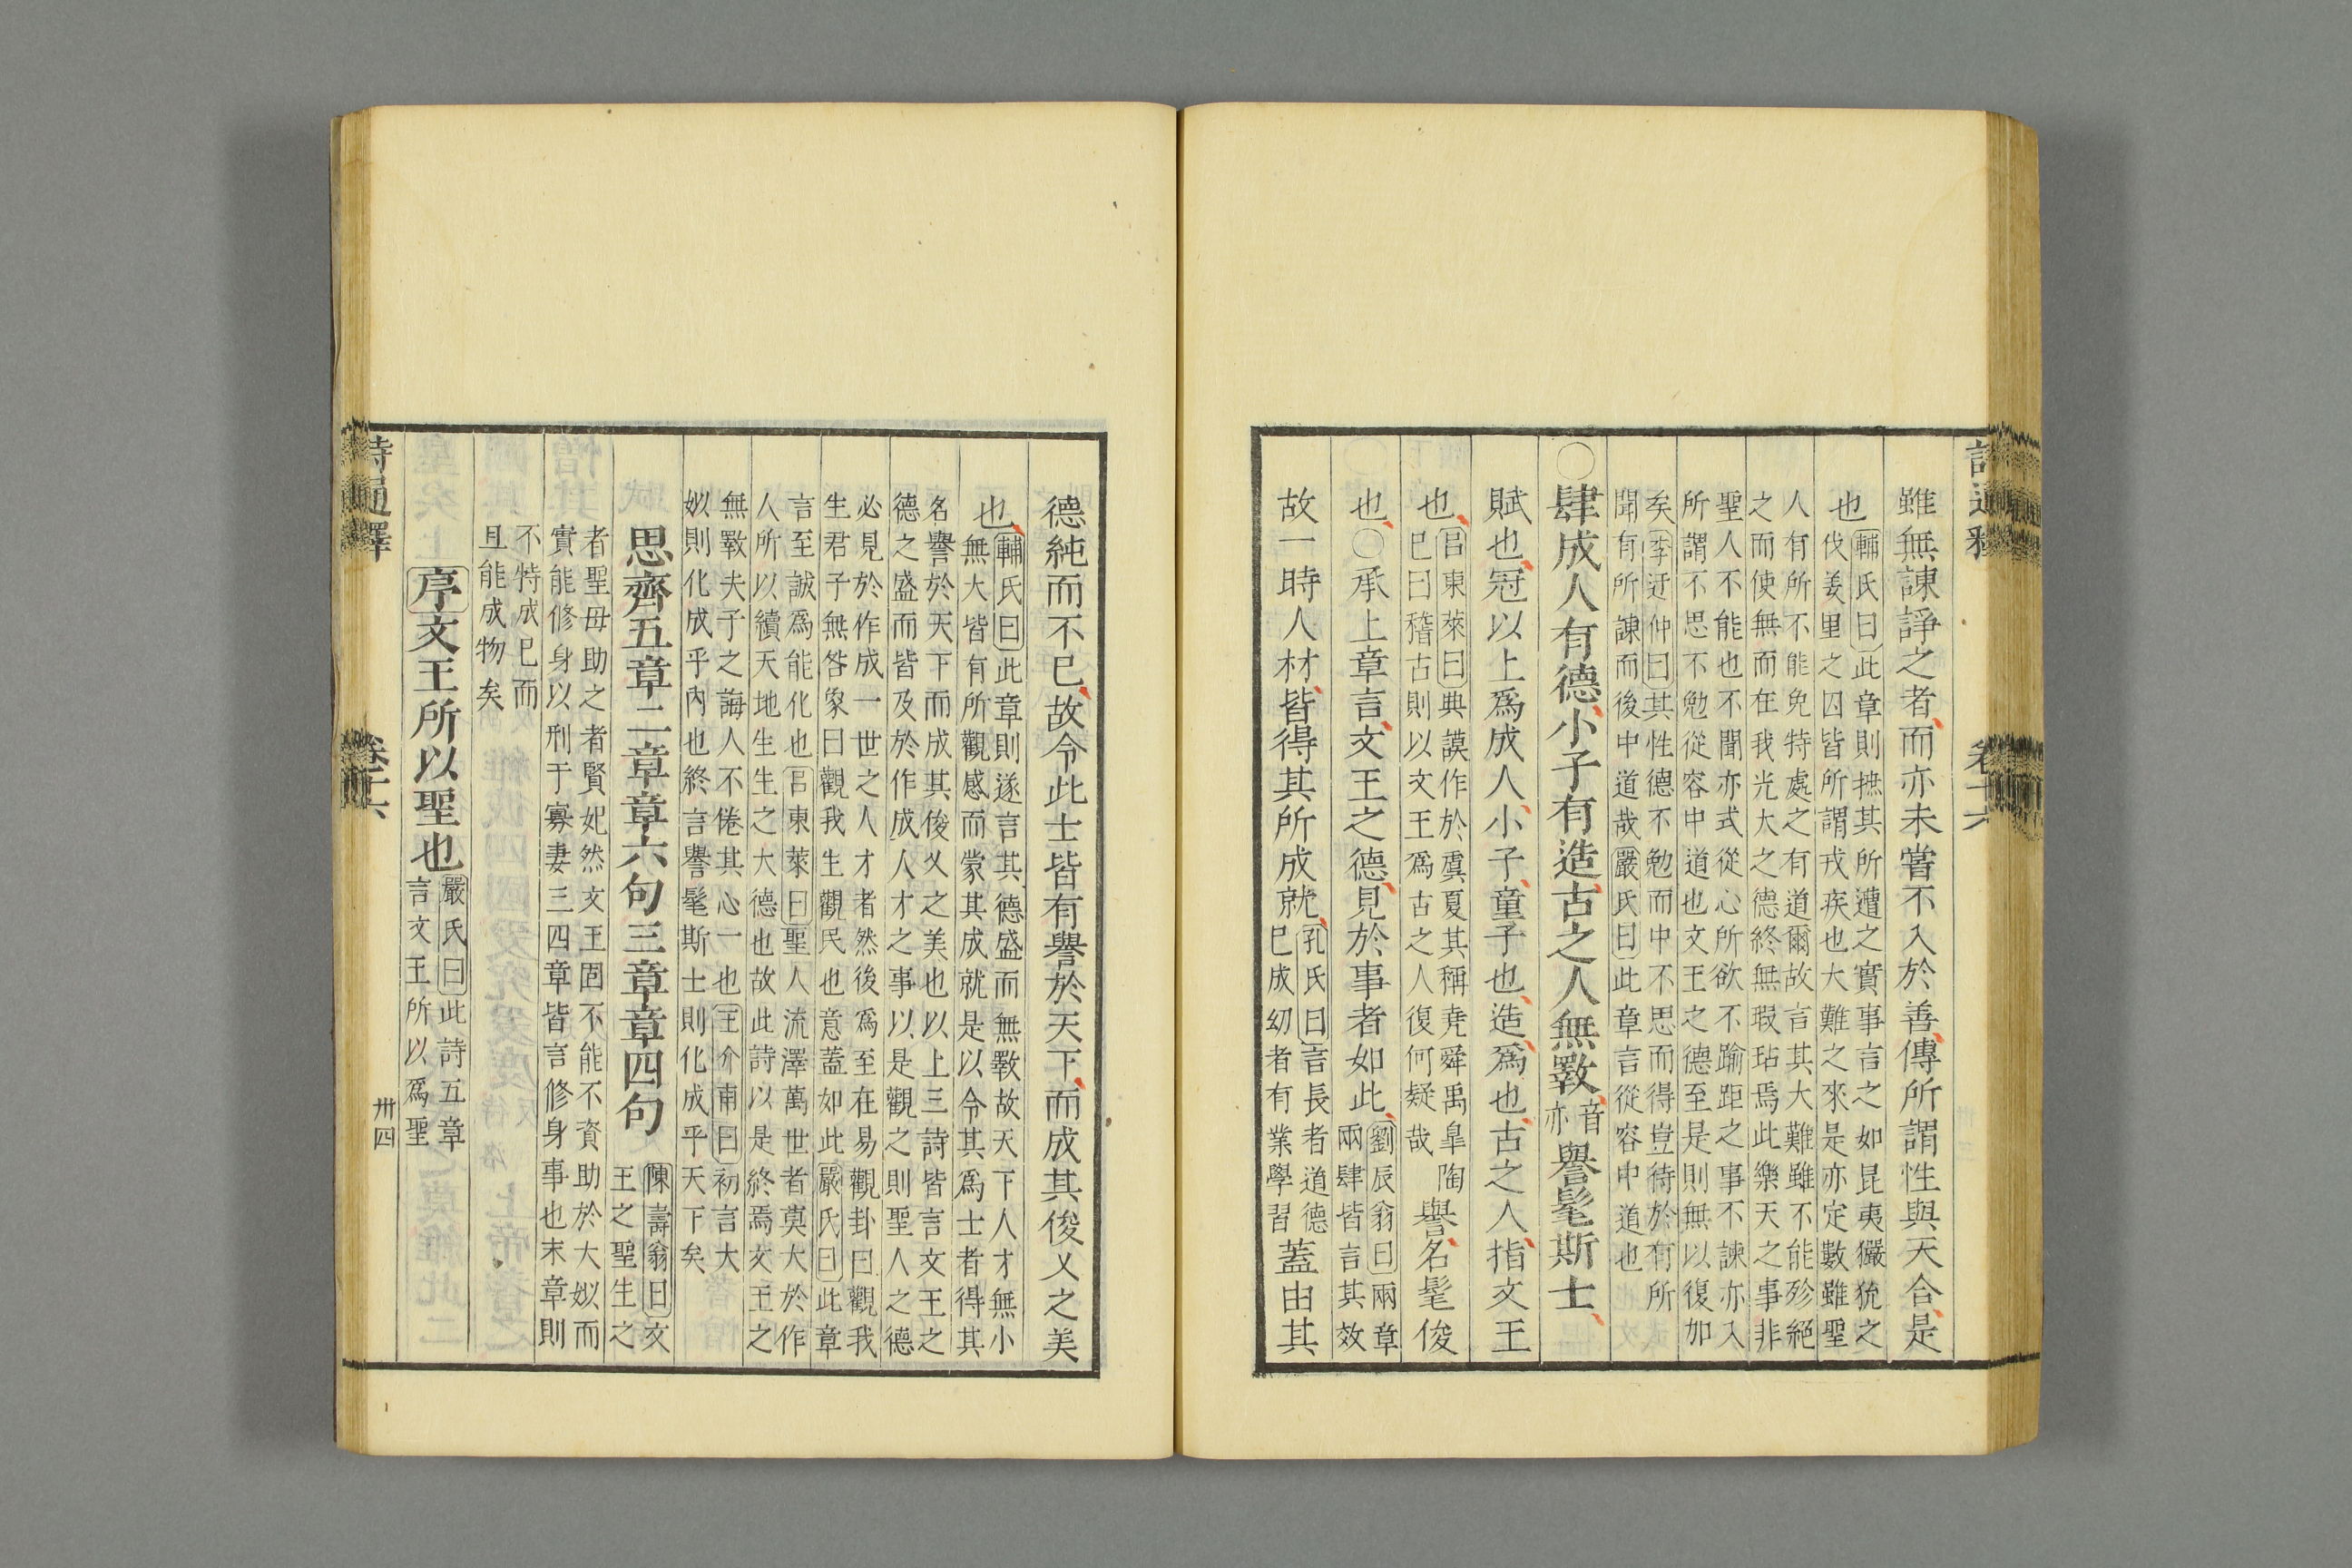 詩通釋　卷十六
雖無諫諍之者而亦未嘗不入於善傳所謂性與天合是
也
輔氏曰此章則摭其所遭之實事言之如昆夷玁狁之
伐羑里之囚皆所謂戎疾也大難之來是亦定數雖聖
人有所不能免特處之有道爾故言其大難雖不能殄絕
之而使無而在我光大之德終無瑕玷焉此樂天之事非
聖人不能也不聞亦式從心所欲不踰距之事不諫亦入
所謂不思不勉從容中道也文王之德至是則無以復加
矣李迂仲曰其性德不勉而中不思而得豈待於有所
聞有所諫而後中道哉嚴氏曰此章言從容中道也
○肆成人有德小子有造古之人無斁音亦譽髦斯士
賦也冠以上爲成人小子童子也造爲也古之人指文王
也
呂東萊曰典謨作於虞夏其稱堯舜禹皐陶
已曰稽古則以文王爲古之人復何疑哉
譽名髦俊
也○承上章言文王之德見於事者如此
劉辰翁曰兩章
兩肆皆言其效
故一時人材皆得其所成就
孔氏曰言長者道德
已成幼者有業學習
蓋由其
德純而不已故令此士皆有譽於天下而成其俊乂之美
也
輔氏曰此章則遂言其德盛而無斁故天下人才無小
無大皆有所觀感而蒙其成就是以令其爲士者得其
名譽於天下而成其俊乂之美也以上三詩皆言文王之
德之盛而皆及於作成人才之事以是觀之則聖人之德
必見於作成一世之人才者然後爲至在易觀卦曰觀我
生君子無咎象曰觀我生觀民也意蓋如此嚴氏曰此章
言至誠爲能化也呂東萊曰聖人流澤萬世者莫大於作
人所以續天地生生之大德也故此詩以是終焉文王之
無斁夫子之誨人不倦其心一也王介甫曰初言大
姒則化成乎內也終言譽髦斯士則化成乎天下矣
思齊五章二章章六句三章章四句
陳壽翁曰文
王之聖生之
者聖母助之者賢妃然文王固不能不資助於大姒而
實能修身以刑于寡妻三四章皆言修身事也末章則
不特成己而
且能成物矣
序文王所以聖也
嚴氏曰此詩五章
言文王所以爲聖
詩通釋　卷十六　卅四